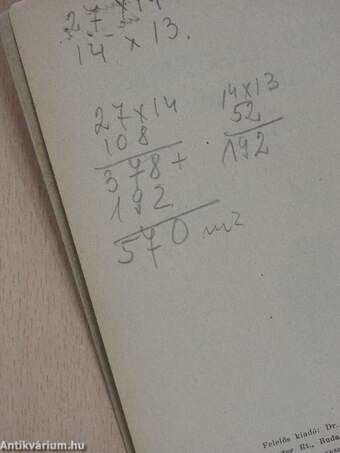 27 x 14
14 x 13.
27x14
108
378 +
192
570 m2
14x13
52
192
Felelős kiadó: Dr.
Antikvárium.hu